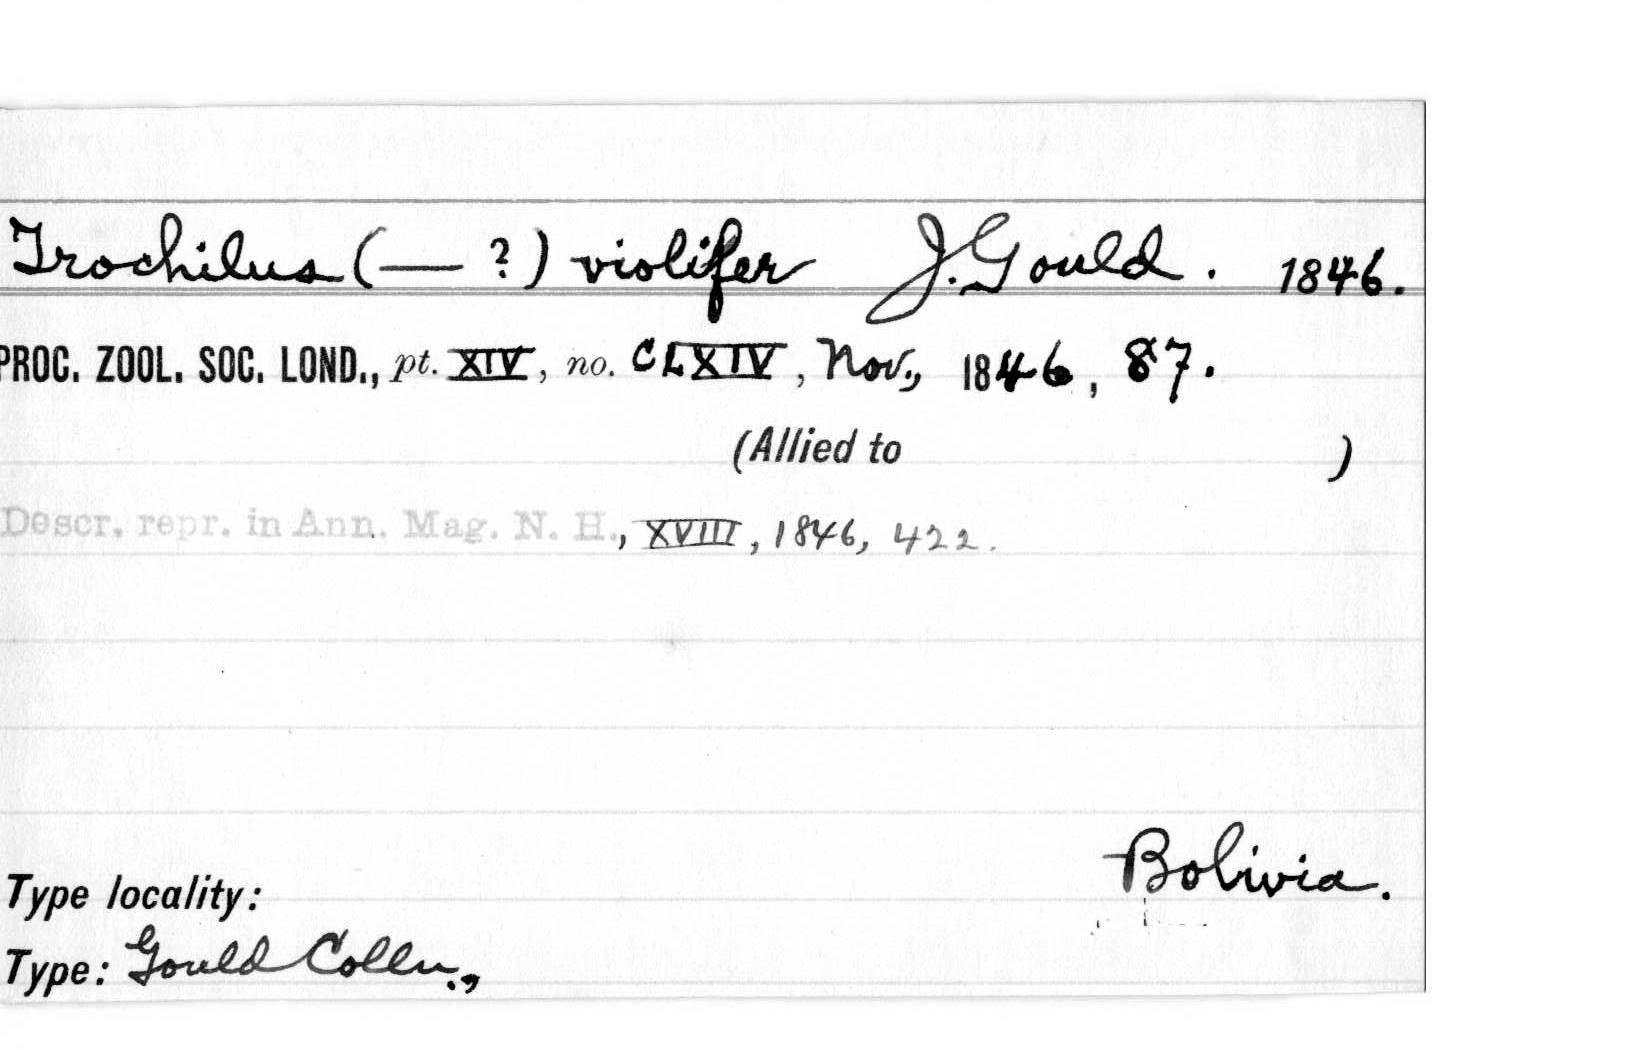 Trochilus (— ?) violifer J. Gould. 1846.
PROC. ZOOL. SOC. LOND., pt. XIV, no. CLXIV, Nov., 1846, 87.
(Allied to )
Descr. repr. in Ann. Mag. N. H., XVIII, 1846, 422.
Type locality: Bolivia.
Type: Gould Colln.,